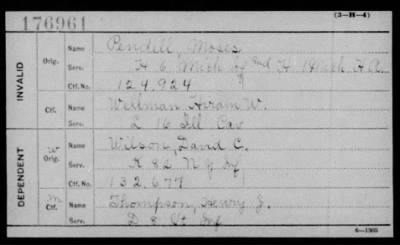 176961
(3-H-4)
INVALID
Orig. Name Pendell, Moses
Serv. H 6 Mich Cy and H 1 Mich H A.
Ctf. No. 124,924
Ctf. Name Wellman Hiram W.
Serv. L 16 Ill Cav
DEPENDENT
W Orig. Name Wilson, David C.
Serv. K 82 N Y Inf
Ctf. No. 132,677
M Ctf. Name Thompson, Henry J.
Serv. D 8 Vt Inf
6—1305